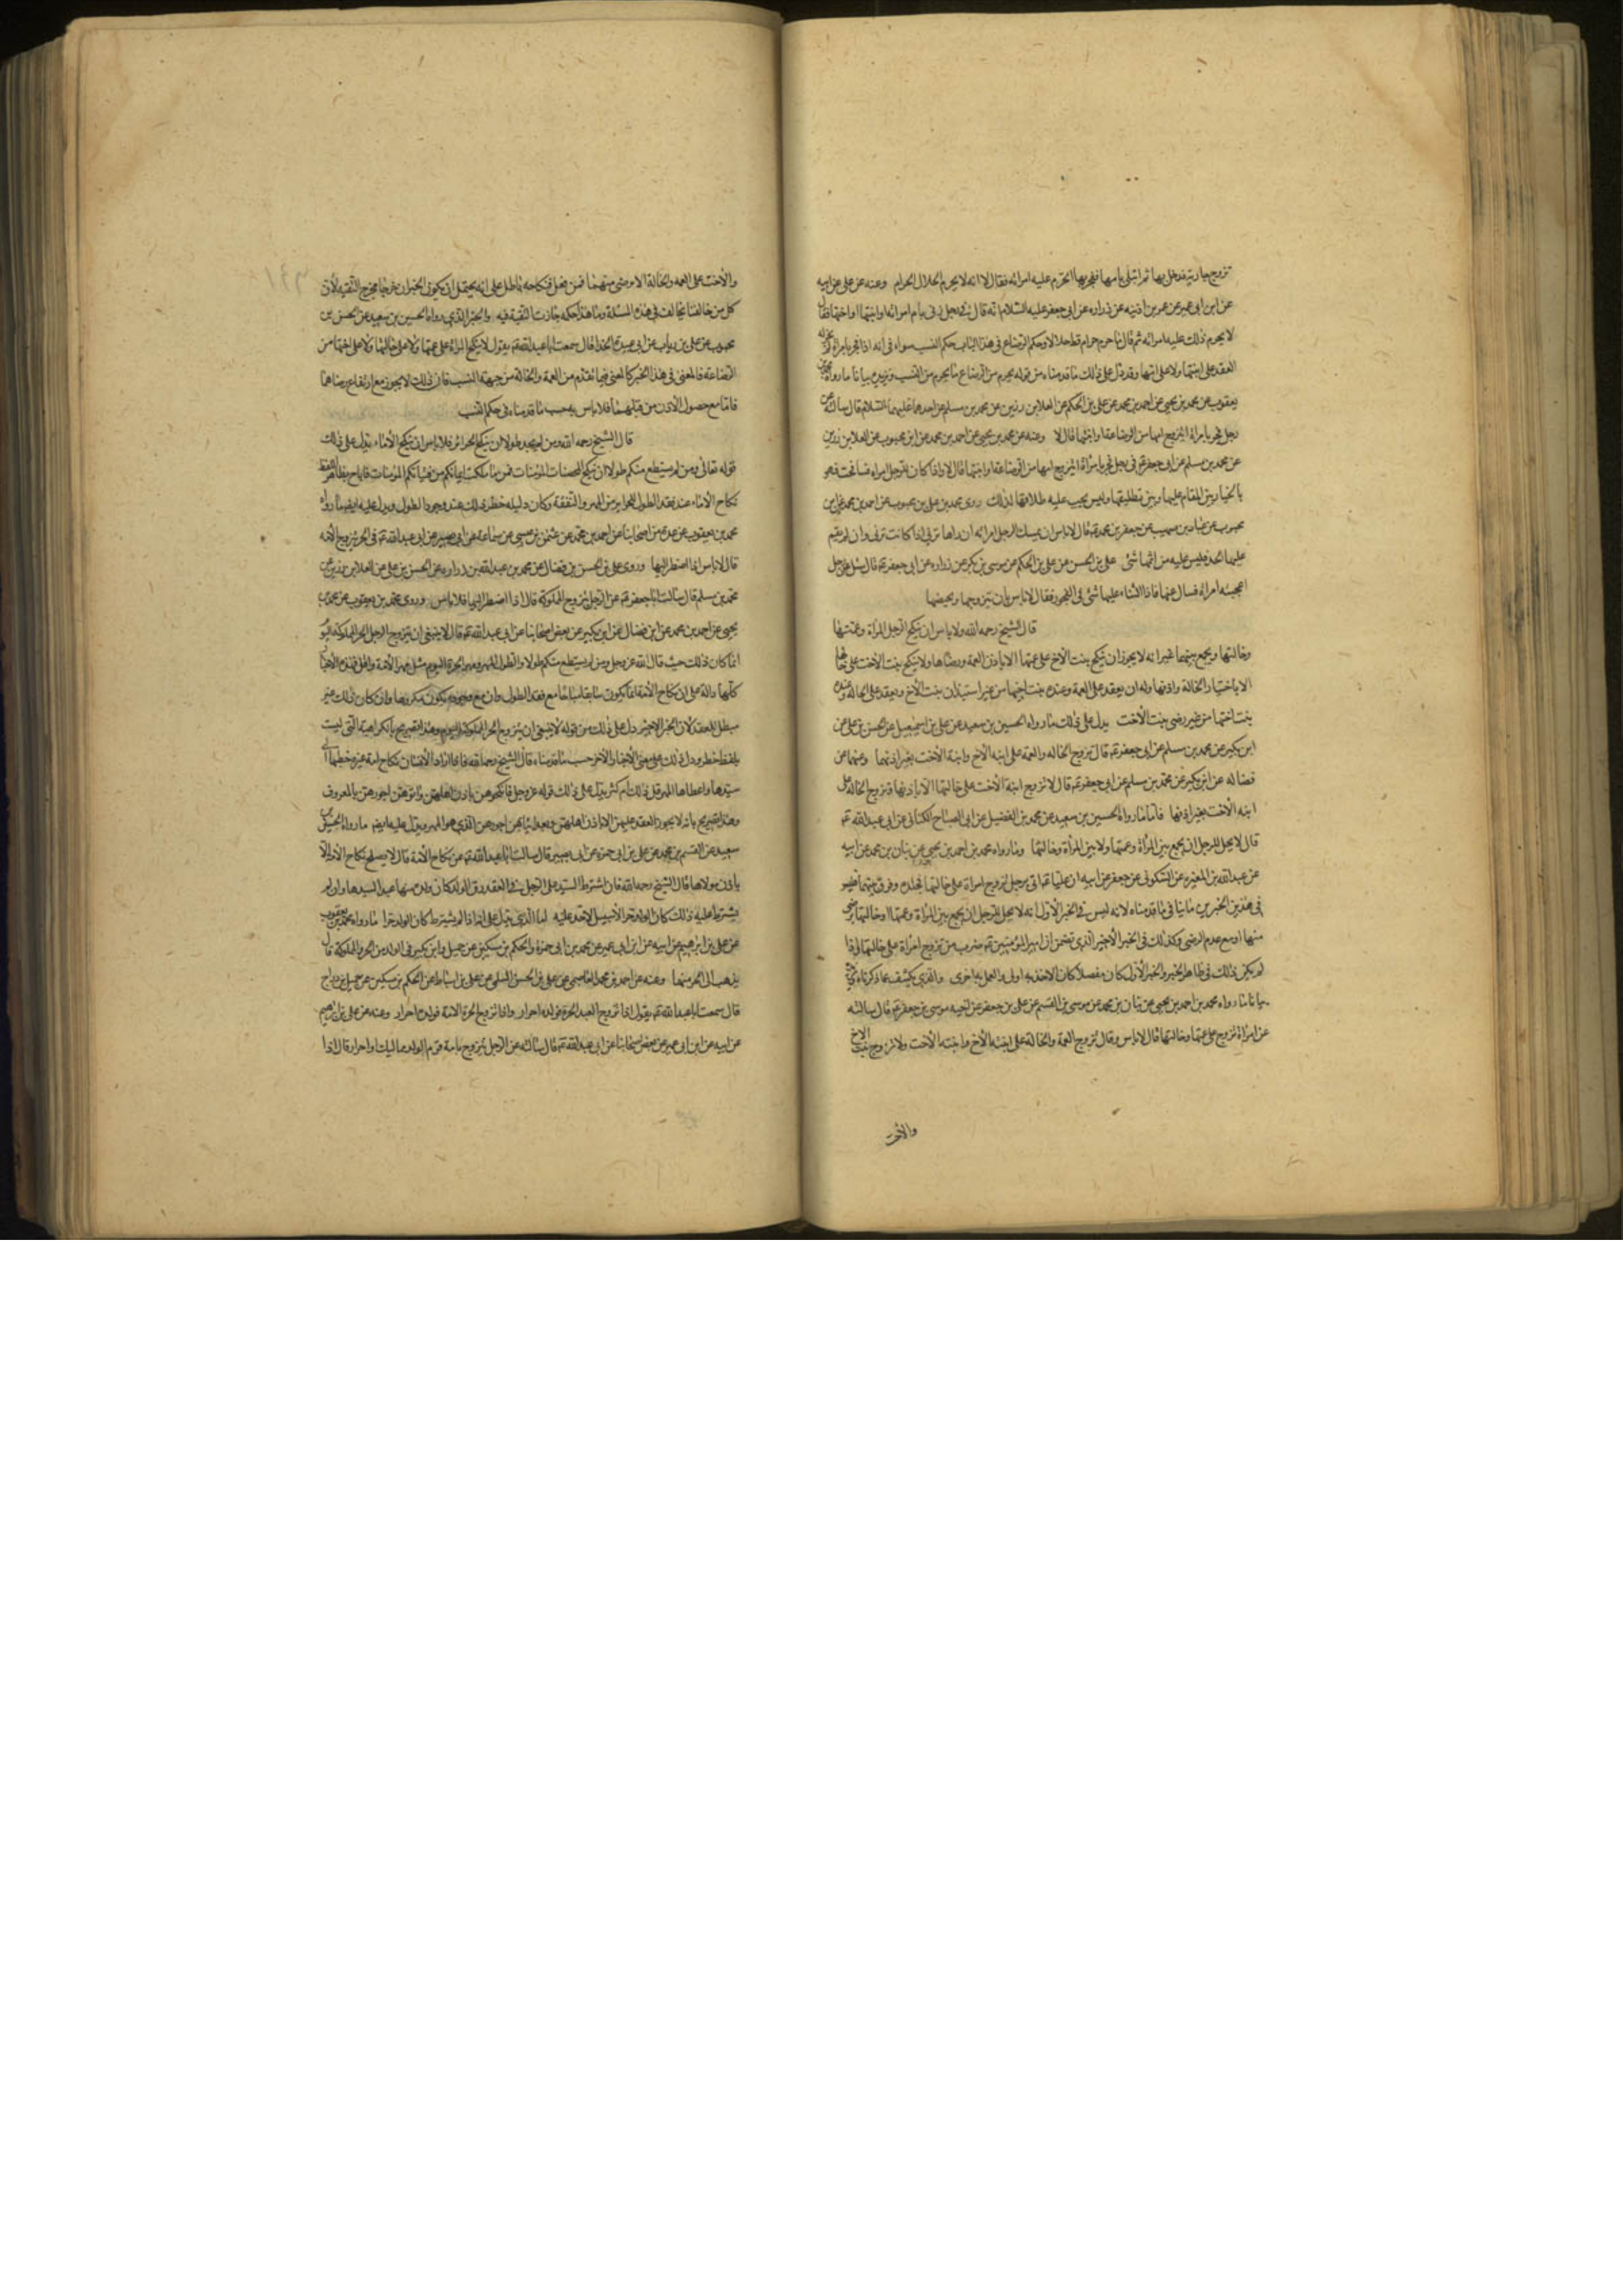 تزوج جارية فدخل بها ثم ابتلى بامها ففجر بها اتحرم عليه امراته فقال لا انه لا يحرم الحلال الحرام وعنه عن على عن ابيه
عن ابن ابى عمير عن عمر بن اذينه عن زراره عن ابى جعفر عليه السلام انه قال فى رجل زنى بام امراته او ابنتها او اختها فقال
لا يحرم ذلك عليه امراته ثم قال ما حرم حرام قط حلالا وحكم الرضاع فى هذا الباب حكم النسب سواء فى انه اذا فجر بامراة
العقد على ابنتها ولا على امها وقد دل على ذلك ما قدمناه من قوله يحرم من الرضاع ما يحرم من النسب ونزيده بيانا ما رواه محمد بن
يعقوب عن محمد بن يحيى عن احمد بن محمد عن على بن الحكم عن العلا بن رزين عن محمد بن مسلم عن احدهما عليهما السلام قال سالته عن
رجل فجر بامراة ايتزوج امها من الرضاعة او ابنتها قال لا وعنه عن محمد بن يحيى عن احمد بن محمد عن ابن محبوب عن العلا بن رزين
عن محمد بن مسلم عن ابى جعفر عم فى رجل فجر بامراة ايتزوج امها من الرضاعة او ابنتها قال لا واذا كان للرجل امراه فسافحت فهو
بالخيار بين المقام عليها وبين تطليقها وليس يجب عليه طلاقها لذلك روى محمد بن على بن محبوب عن احمد بن محمد عن ابن
محبوب عن عباد بن صهيب عن جعفر بن محمد عم قال لا باس ان يمسك الرجل امراته ان راها تزنى اذا كانت تزنى وان لم يقم
عليها الحد فليس عليه من اثمها شئ على بن الحسن عن على بن الحكم عن موسى بن بكر عن زراره عن ابى جعفر عم قال سئل عن رجل
اعجبته امراة فسال عنها فاذا الثناء عليها شئ فى الفجور فقال لا باس بان يتزوجها ويحصنها
قال الشيخ رحمه الله ولا باس ان ينكح الرجل المراة وعمتها
وخالتها ويجمع بينهما غير انه لا يجوز ان ينكح بنت الاخ على عمتها الا باذن العمة ورضاها ولا ينكح بنت الاخت على خالتها
الا باختيار الخالة واذنها وله ان يعقد على العمة وعنده بنت اخيها من غير استيذان بنت الاخ ويعقد على الخالة وعنده
بنت اختها من غير رضى بنت الاخت يدل على ذلك ما رواه الحسين بن سعيد عن على بن اسمعيل عن الحسن بن على عن
ابن بكير عن محمد بن مسلم عن ابى جعفر عم قال تزوج الخاله والعمة على ابنه الاخ وابنة الاخت بغير اذنهما وعنهما عن
فضاله عن ابن بكير عن محمد بن مسلم عن ابى جعفر عم قال لا تزوج ابنة الاخت على خالتها الا باذنها وتزوج الخاله على
ابنه الاخت بغير اذنها فاما ما رواه الحسين بن سعيد عن محمد بن الفضيل عن ابى الصباح الكنانى عن ابى عبد الله عم
قال لا يحل للرجل ان يجمع بين المراة وعمتها ولا بين المراة وخالتها وما رواه محمد بن احمد بن يحيى عن بنان بن محمد عن ابيه
عن عبد الله بن المغيره عن السكونى عن جعفر عن ابيه ان عليا عم اتى برجل تزوج امراة على خالتها فجلده وفرق بينهما فليس
فى هذين الخبرين ما ينافى ما قدمناه لانه ليس فى الخبر الاول انه لا يحل للرجل ان يجمع بين المراة وعمتها او خالتها برضى
منها او مع عدم الرضى وكذلك فى الخبر الاخير الذى تضمن ان امير المؤمنين عم ضرب من تزوج امراة على خالتها واذا
لم يكن ذلك فى ظاهر الخبر والخبر الاول كان مفصلا كان الاخذ به اولى والعمل به احرى والذى يكشف عما ذكرناه
بيانا ما رواه محمد بن احمد بن يحيى عن بنان بن محمد عن موسى بن القسم عن على بن جعفر عن اخيه موسى بن جعفر عم قال سالته
عن امراة تزوج على عمتها وخالتها قال لا باس وقال تزوج العمة والخالة على ابنة الاخ وابنة الاخت ولا تزوج بنت الاخ
والاخت
والاخت على العمه والخالة الا برضى منهما فمن فعل فنكاحه باطل على انه يحتمل ان يكون الخبران خرجا مخرج التقيه لان
كل من خالفنا يخالف فى هذه المسئلة وما هذا حكمه جازت التقية فيه والخبر الذى رواه الحسين بن سعيد عن الحسن بن
محبوب عن على بن رياب عن ابى عبيدة الحذا قال سمعت ابا عبد الله عم يقول لا ينكح المراة على عمتها ولا على خالتها ولا على اختها من
الرضاعة فالمعنى فى هذا الخبر كالمعنى فيما تقدم من العمة والخالة من جهة النسب فان ذلك لا يجوز مع ارتفاع رضاهما
فاما مع حصول الاذن من قبلهما فلا باس به حسب ما قدمناه فى حكم النسب
قال الشيخ رحمه الله ومن لم يجد طولا لان ينكح الحرائر فلا باس ان ينكح الاماء يدل على ذلك
قوله تعالى ومن لم يستطع منكم طولا ان ينكح المحصنات المؤمنات فمن ما ملكت ايمانكم من فتياتكم المؤمنات فاباح بظاهر اللفظ
نكاح الاماء عند فقد الطول للحرائر من المهر والنفقة وكان دليله حظر ذلك عند وجود الطول ويدل عليه ايضا ما رواه
محمد بن يعقوب عن عدة من اصحابنا عن احمد بن محمد عن عثمن بن عيسى عن سماعة عن ابى بصير عن ابى عبد الله عم فى الحر يتزوج الامة
قال لا باس اذا اضطر اليها وروى على بن الحسن بن فضال عن محمد بن عبد الله بن زراره عن الحسن بن على عن العلا بن رزين عن
محمد بن مسلم قال سالت ابا جعفر عم عن الرجل يتزوج المملوكة قال اذا اضطر اليها فلا باس وروى محمد بن يعقوب عن محمد بن
يحيى عن احمد بن محمد عن ابن فضال عن ابن بكير عن بعض اصحابنا عن ابى عبد الله عم قال لا ينبغى ان يتزوج الرجل الحر المملوكة اليوم
انما كان ذلك حيث قال الله عز وجل ومن لم يستطع منكم طولا والطول المهر ومهر الحرة اليوم مثل مهر الامة واقل فهذه الاخبار
كلها دالة على ان نكاح الامة انما يكون سايغا مباحا مع فقد الطول وان مع وجوده يكون مكروها وان كان ذلك غير
مبطل للعقد لان الخبر الاخير دل على ذلك من قوله لا ينبغى ان يتزوج الحر المملوكة اليوم وهذا تصريح بالكراهية التى ليست
بلفظ حظر ودل ذلك على معنى الاخبار الاخر حسب ما قدمناه قال الشيخ رحمه الله فاذا اراد الانسان نكاح امة غيره خطبها الى
سيدها واعطاه المهر قل ذلك ام كثر يدل على ذلك قوله عز وجل فانكحوهن باذن اهلهن واتوهن اجورهن بالمعروف
وهذا تصريح بانه لا يجوز العقد عليهن الا باذن اهلهن وبعد ايتائهن اجورهن الذى هو المهر ويدل عليه ايضا ما رواه الحسين بن
سعيد عن القسم بن محمد عن على بن ابى حمزة عن ابى بصير قال سالت ابا عبد الله عم عن نكاح الامة قال لا يصلح نكاح الامة الا
باذن مولاها قال الشيخ رحمه الله فان اشترط السيد على الرجل فى العقد رق الولد كان ولده منها عبدا لسيدها وان لم
يشترط عليه ذلك كان الولد حرا لا سبيل لاحد عليه اما الذى يدل على انه اذا لم يشترط كان الولد حرا ما رواه محمد بن يعقوب
عن على بن ابرهيم عن ابيه عن ابن ابى عمير عن محمد بن ابى حمزة والحكم بن مسكين عن جميل وابن بكير فى الولد من الحر والمملوكة قال
يذهب الى الحر منهما وعنه عن احمد بن محمد العاصمى عن على بن الحسن السلمى عن على بن اسباط عن الحكم بن مسكين عن جميل بن دراج
قال سمعت ابا عبد الله عم يقول اذا تزوج العبد الحرة فولده احرار واذا تزوج الحر الامة فولده احرار وعنه عن على بن ابرهيم
عن ابيه عن ابن ابى عمير عن بعض اصحابنا عن ابى عبد الله عم قال سالته عن الرجل يتزوج بامة قوم الولد مماليك او احرار قال اذا